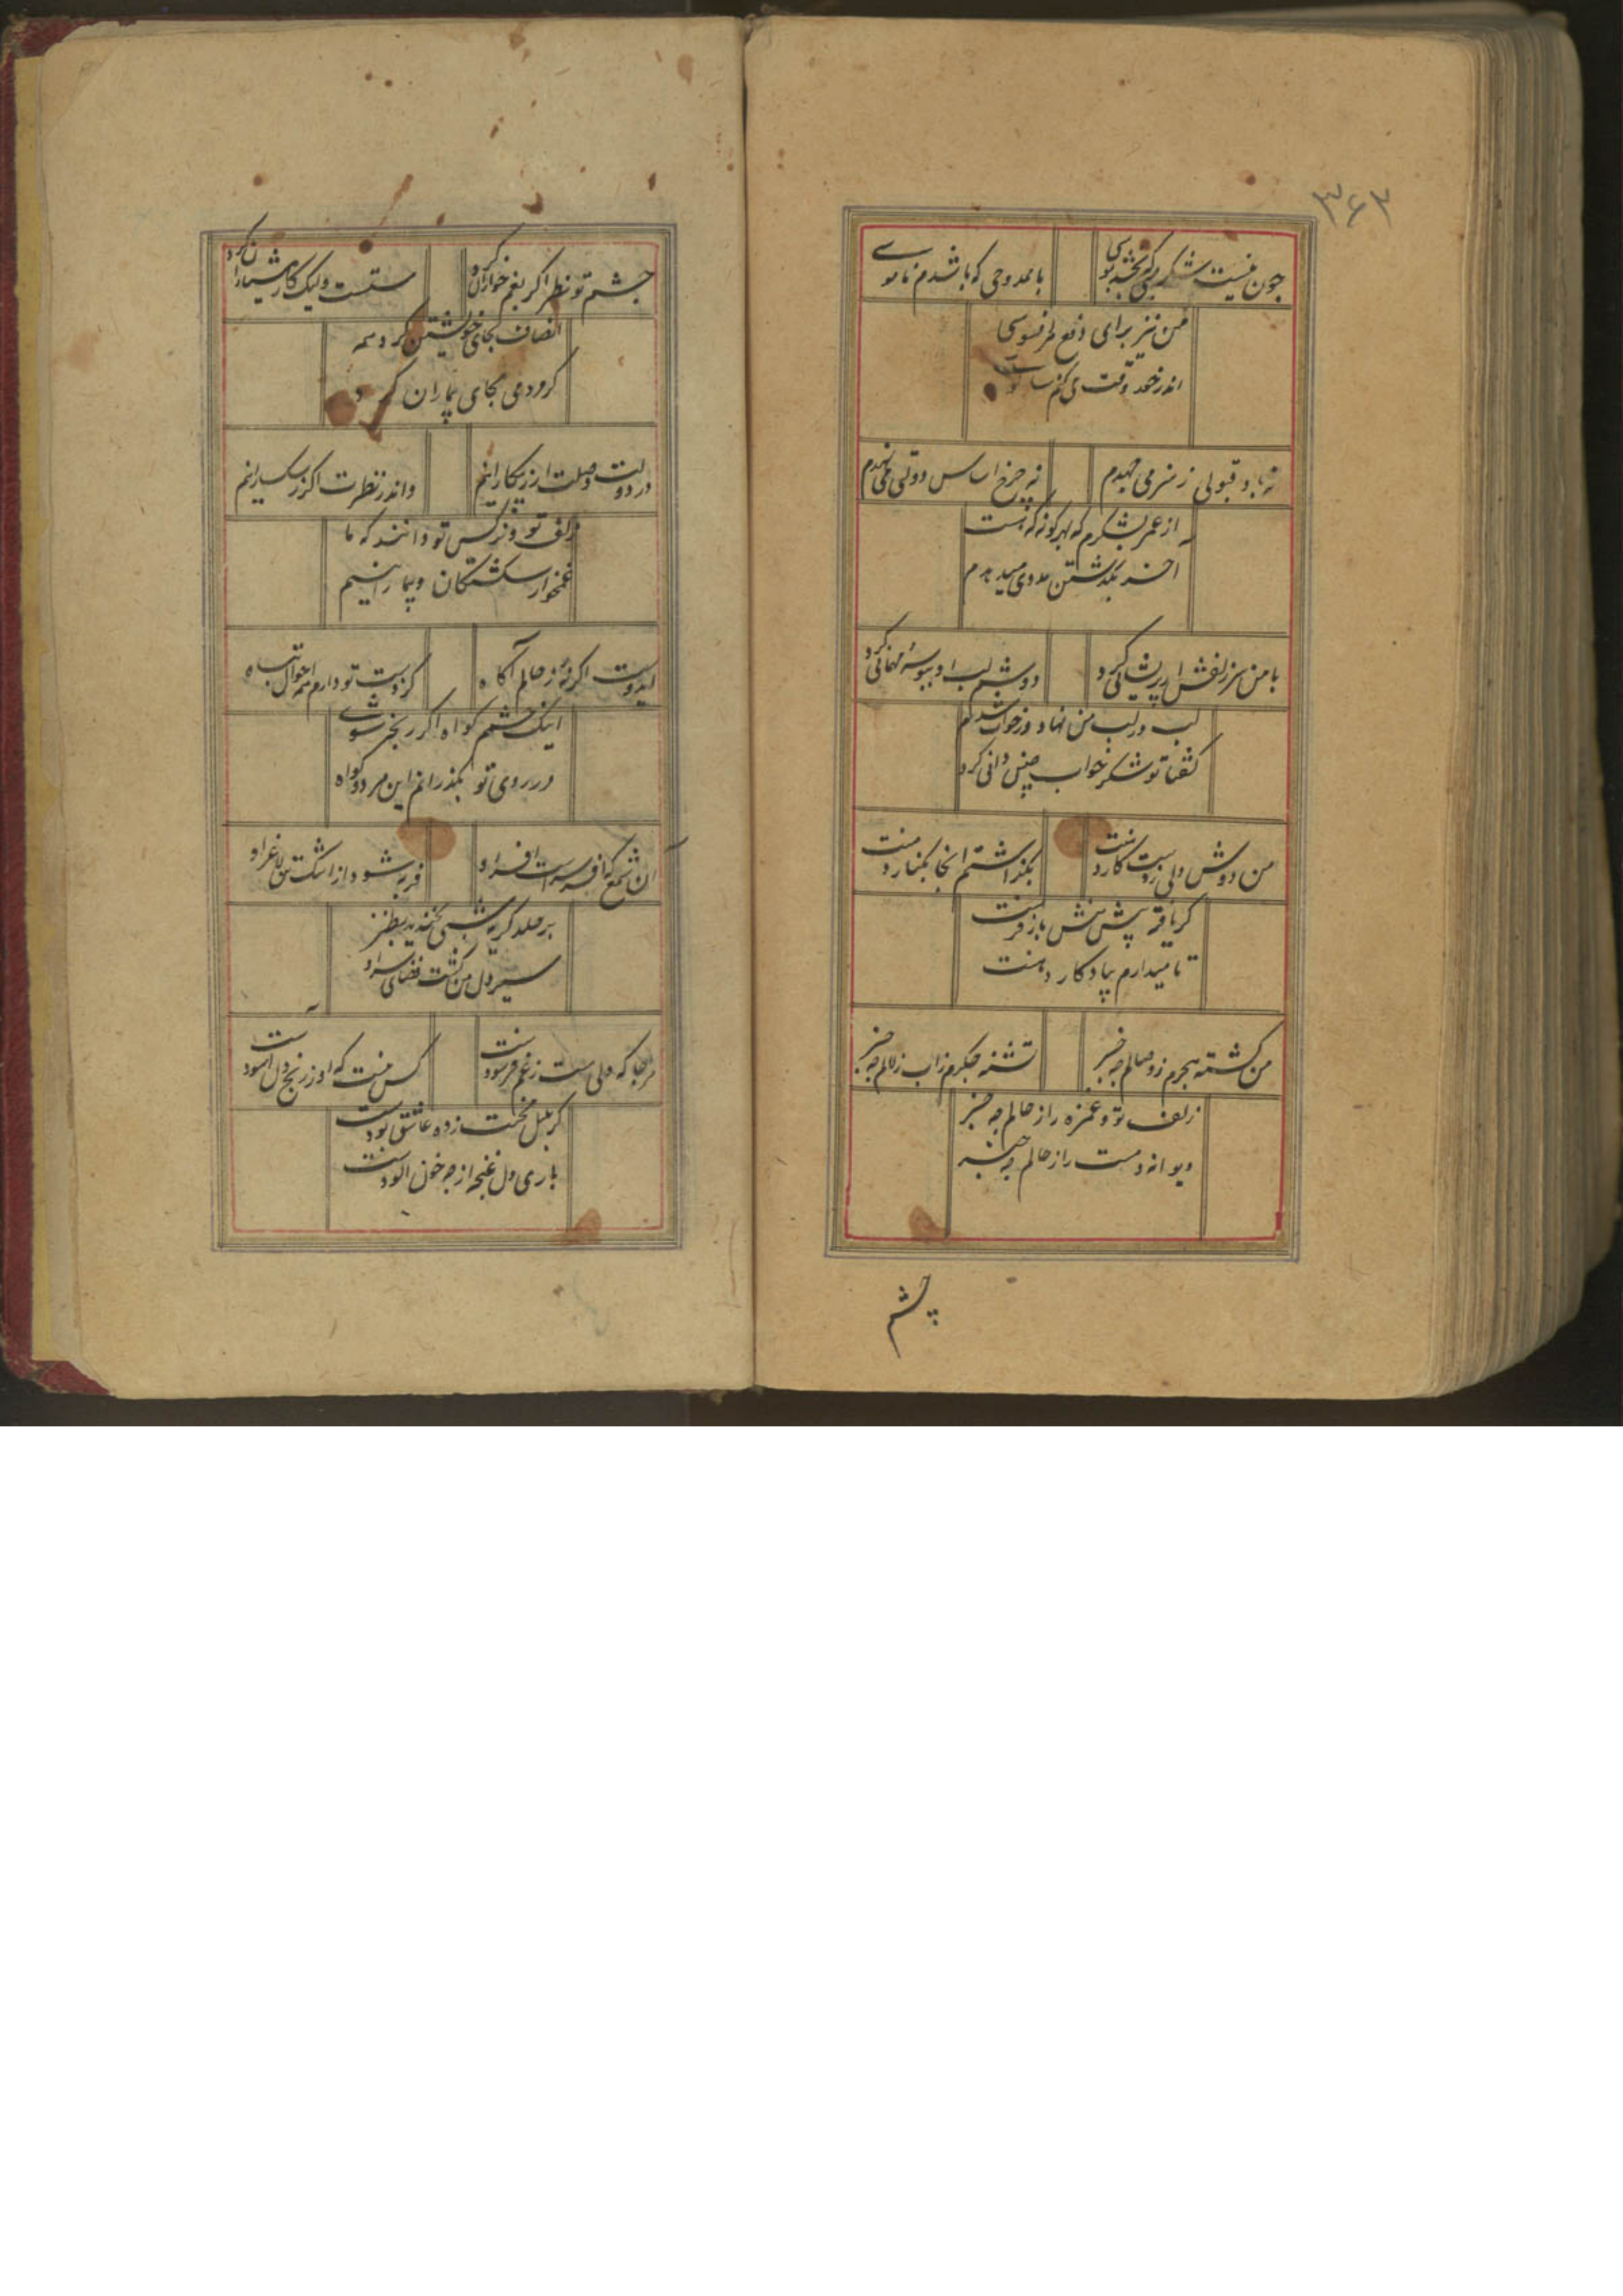 ۳۶۳
چون نیست شکر لبی که بخشد بوسی
یا ممدوحی که باشدم ناموسی
من نیز برای دفع هر افسوسی
اندر خود وقت می کنم
نه باد قبولی ز هنر می جهدم
نه چرخ اساس دولتی می نهدم
از عمر بشکرم که بهر گونه که هست
آخر بگذشتن مددی میدهدم
با من سر زلفش ار پریشانی کرد
دوشم لب او ببوسه مهمانی کرد
لب در لب من نهاد و در خواب شدم
گفتا تو شکر خواب چنین دانی کرد
من دوش دلی ز دست
بگذاشتم آنجا بکنار
گر یافته پیش منش باز فرست
تا میدارم بیادگار دهنت
من کشته هجرم ز وصالم چه خبر
تشنه جگرم ز آب زلالم چه خبر
زلف تو و غمزه را ز حالم چه خبر
دیوانه و مست را ز حالم چه خبر
چشم
چشم تو نظر اگر بغمخواران کرد
مستست ولیک کار هشیاران کرد
انصاف بجای خویشتن کرد همه
کردمی بجای بیماران کرد
در دولت وصلت ار ز بیکارانیم
و اندر نظرت اگر ز بسیارانیم
زلف تو و نرگس تو دانند که ما
غمخوار شکستگان و بیمارانیم
ایدوست اگر نه ز حالم آگاه
کز دست تو دارم همه احوال تباه
اینک چشمم گواه اگر رنجه شوی
در روی تو بگذرانم این هر دو گواه
آن شمع که افسر است
فربه شود از اشک تن لاغر او
بر صد گریه شبی بخندید بطنز
سیر دل من گشت قضای سر او
هر جا که دلی است ز غم فرسودست
کس نیست که او ز رنج دل آسودست
گر بلبل محنت زده عاشق بودست
باری دل غنچه از چه خون آلودست